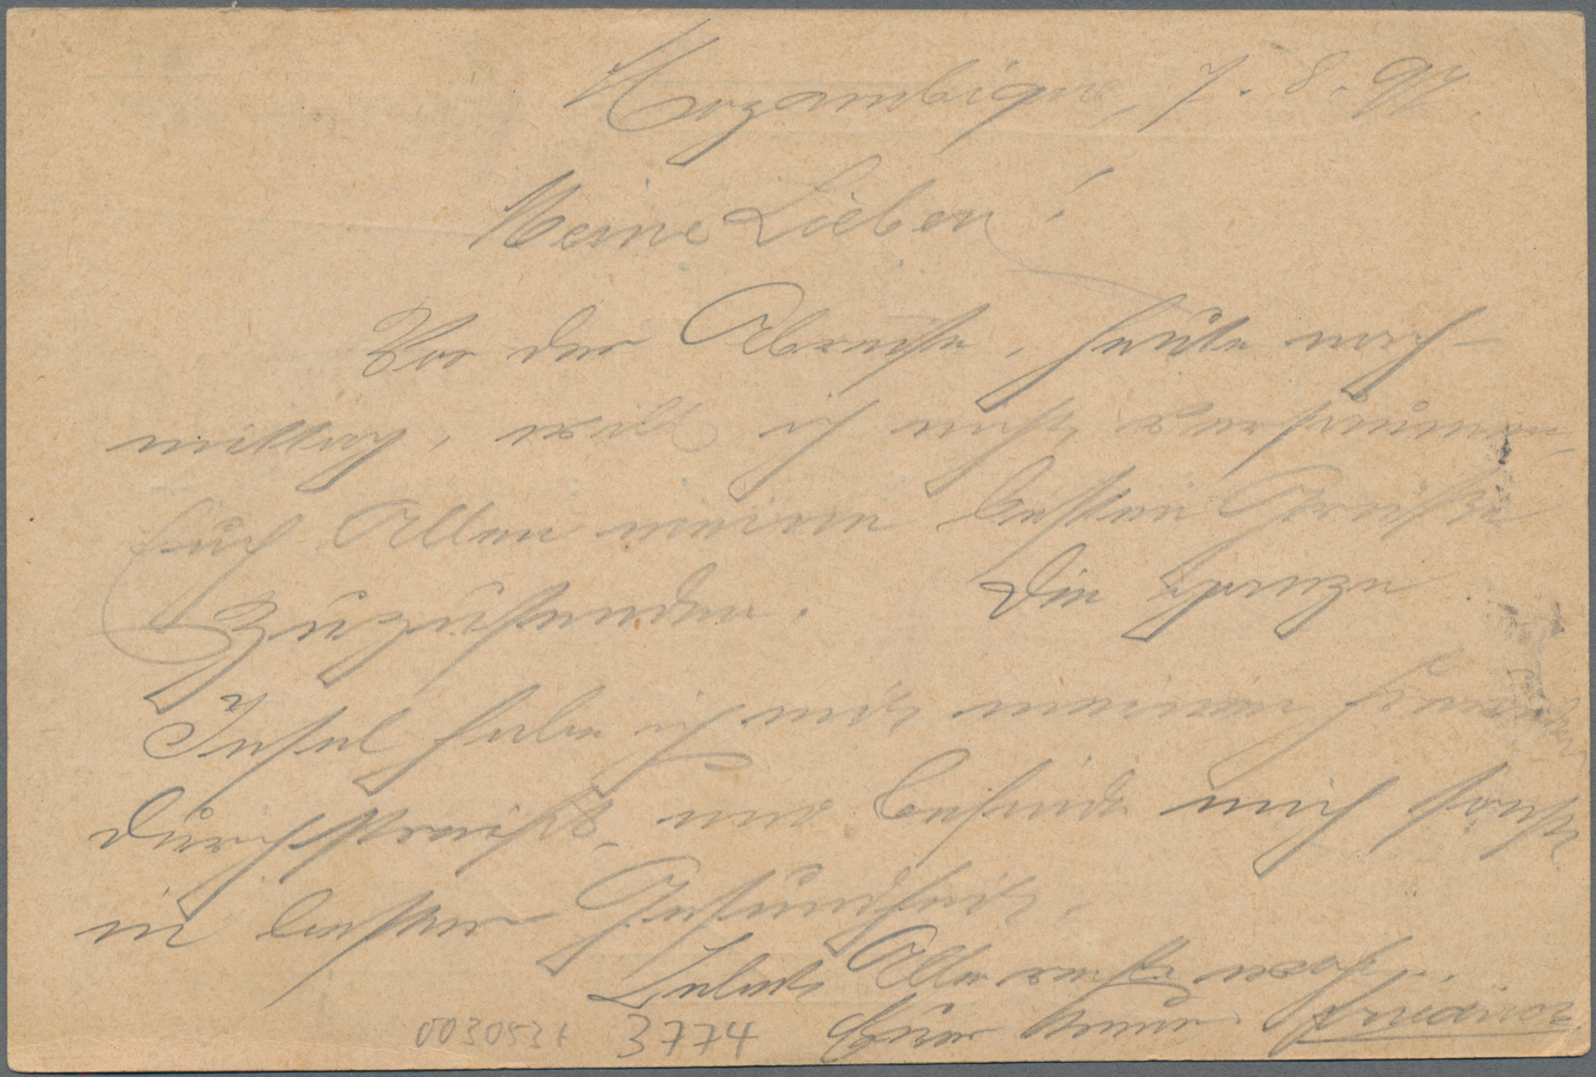 Mozambique, 7. 8. 97.
Meine Lieben!
Vor der Abreise, heute nach-
mittag, will ich nicht versäumen,
Euch Allen meine besten Grüsse
zuzusenden. Die ganze
Insel habe ich mit meinen
durchstreift, und befinde mich sonst
in bester Gesundheit.
Lebet Alle recht wohl.
Euer
0030531 3774